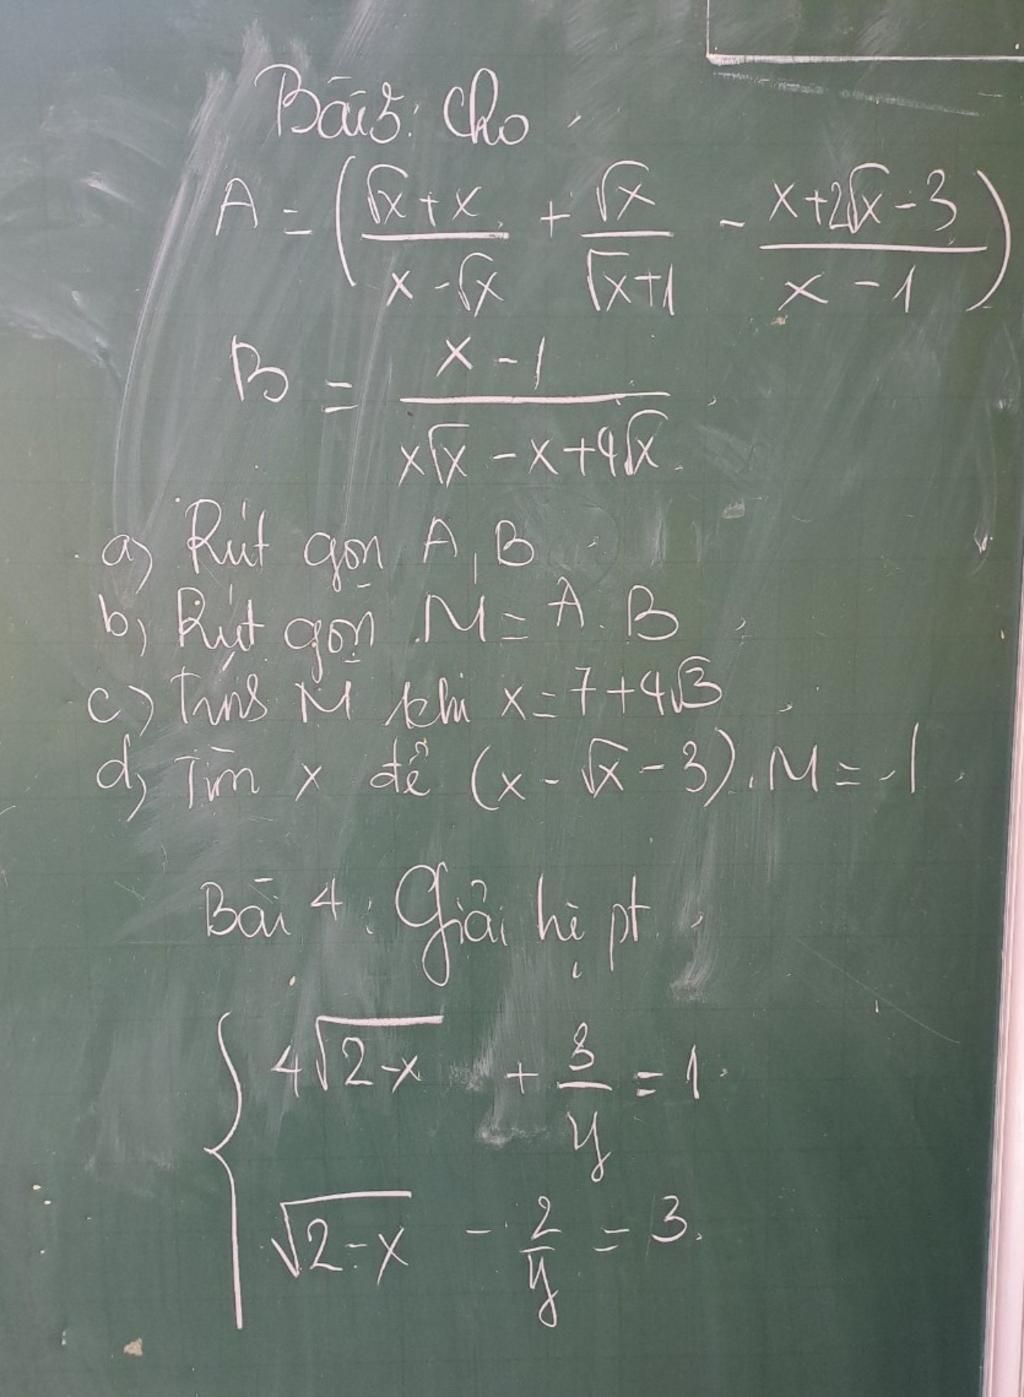 Bài 3: Cho
A = ( (√x + x)/(x - √x) + √x/(√x + 1) - (x + 2√x - 3)/(x - 1) )
B = (x - 1)/(x√x - x + 4√x)
a) Rút gọn A, B
b) Rút gọn M = A . B
c) Tính M khi x = 7 + 4√3
d) Tìm x để (x - √x - 3) . M = -1
Bài 4 : Giải hệ pt
4√(2-x) + 3/y = 1
√(2-x) - 2/y = 3